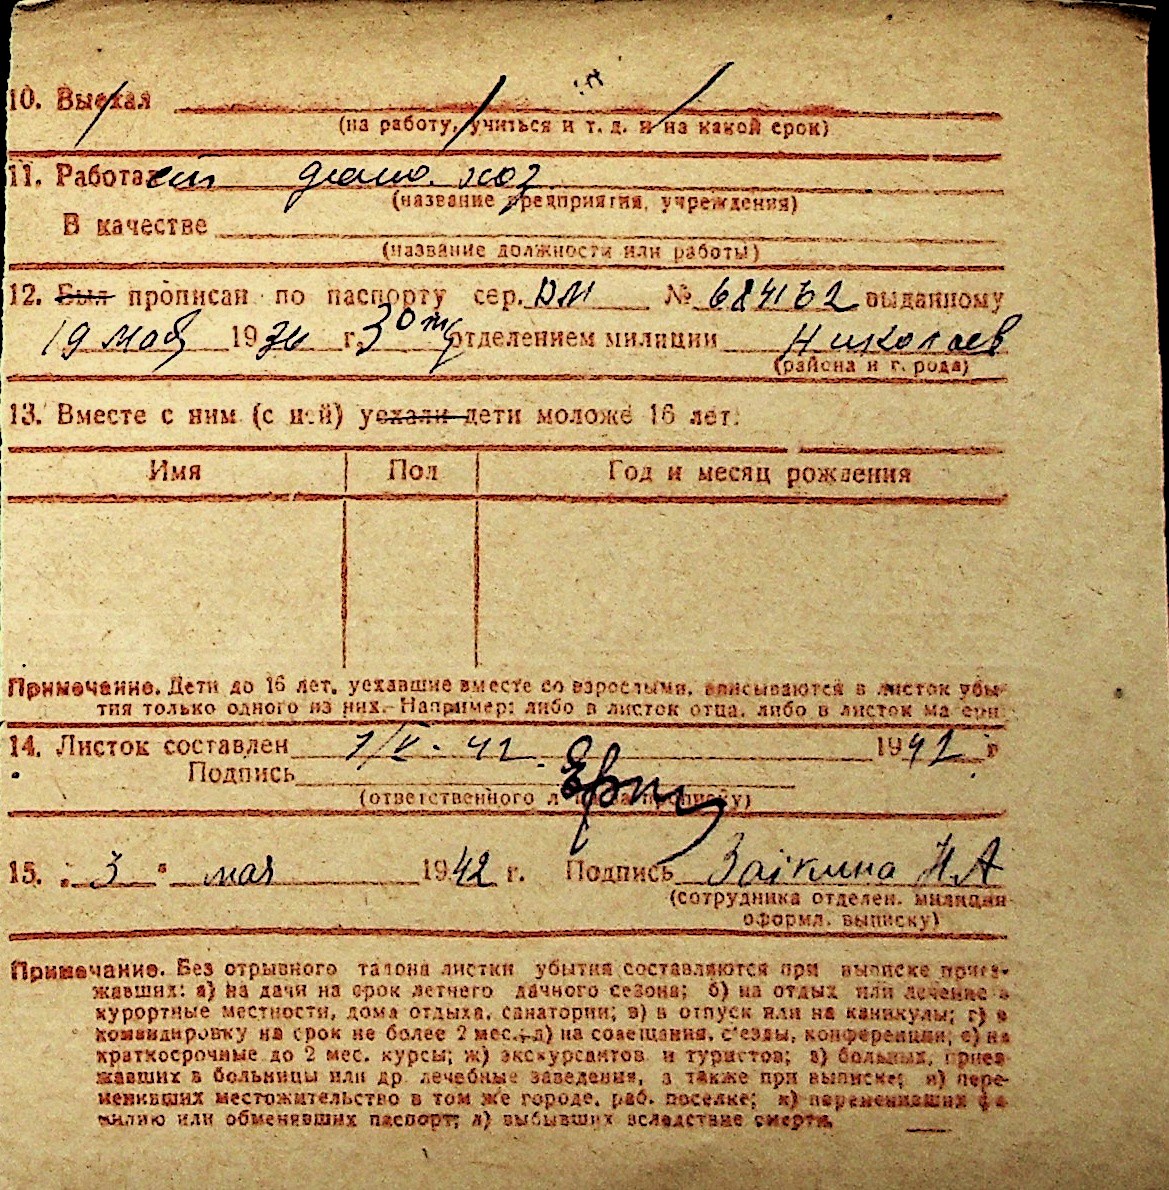 10. Выехал
(на работу, учиться и т. д. и на какой срок)
11. Работа домо. хоз
(название предприятия, учреждения)
В качестве
(название должности или работы)
12. Был прописан по паспорту сер. № 684162 выданному
19 мая 19 г. 30 отделением милиции Николаев
(района и г. рода)
13. Вместе с ним (с ней) уехали дети моложе 16 лет.
Имя Пол Год и месяц рождения
Примечание. Дети до 16 лет, уехавшие вместе со взрослыми, вписываются в листок убы-
тия только одного из них. Например: либо в листок отца, либо в листок матери
14. Листок составлен 1/V - 42 1942 г
Подпись
(ответственного л за прописку)
15. „ 3 " мая 1942 г. Подпись Заікина Н А
(сотрудника отделен. милиции
оформл. выписку)
Примечание. Без отрывного талона листки убытия составляются при выписке приез-
жавших: а) на дачи на срок летнего дачного сезона; б) на отдых или лечение в
курортные местности, дома отдыха, санатории; в) в отпуск или на каникулы; г) в
командировку на срок не более 2 мес.; д) на совещания, с'езды, конференции; е) на
краткосрочные до 2 мес. курсы; ж) экскурсантов и туристов; з) больных, приез-
жавших в больницы или др. лечебные заведения, а также при выписке; и) пере-
менивших местожительство в том же городе, раб. поселке; к) переменивших фа-
милию или обменивших паспорт; л) выбывших вследствие смерти.